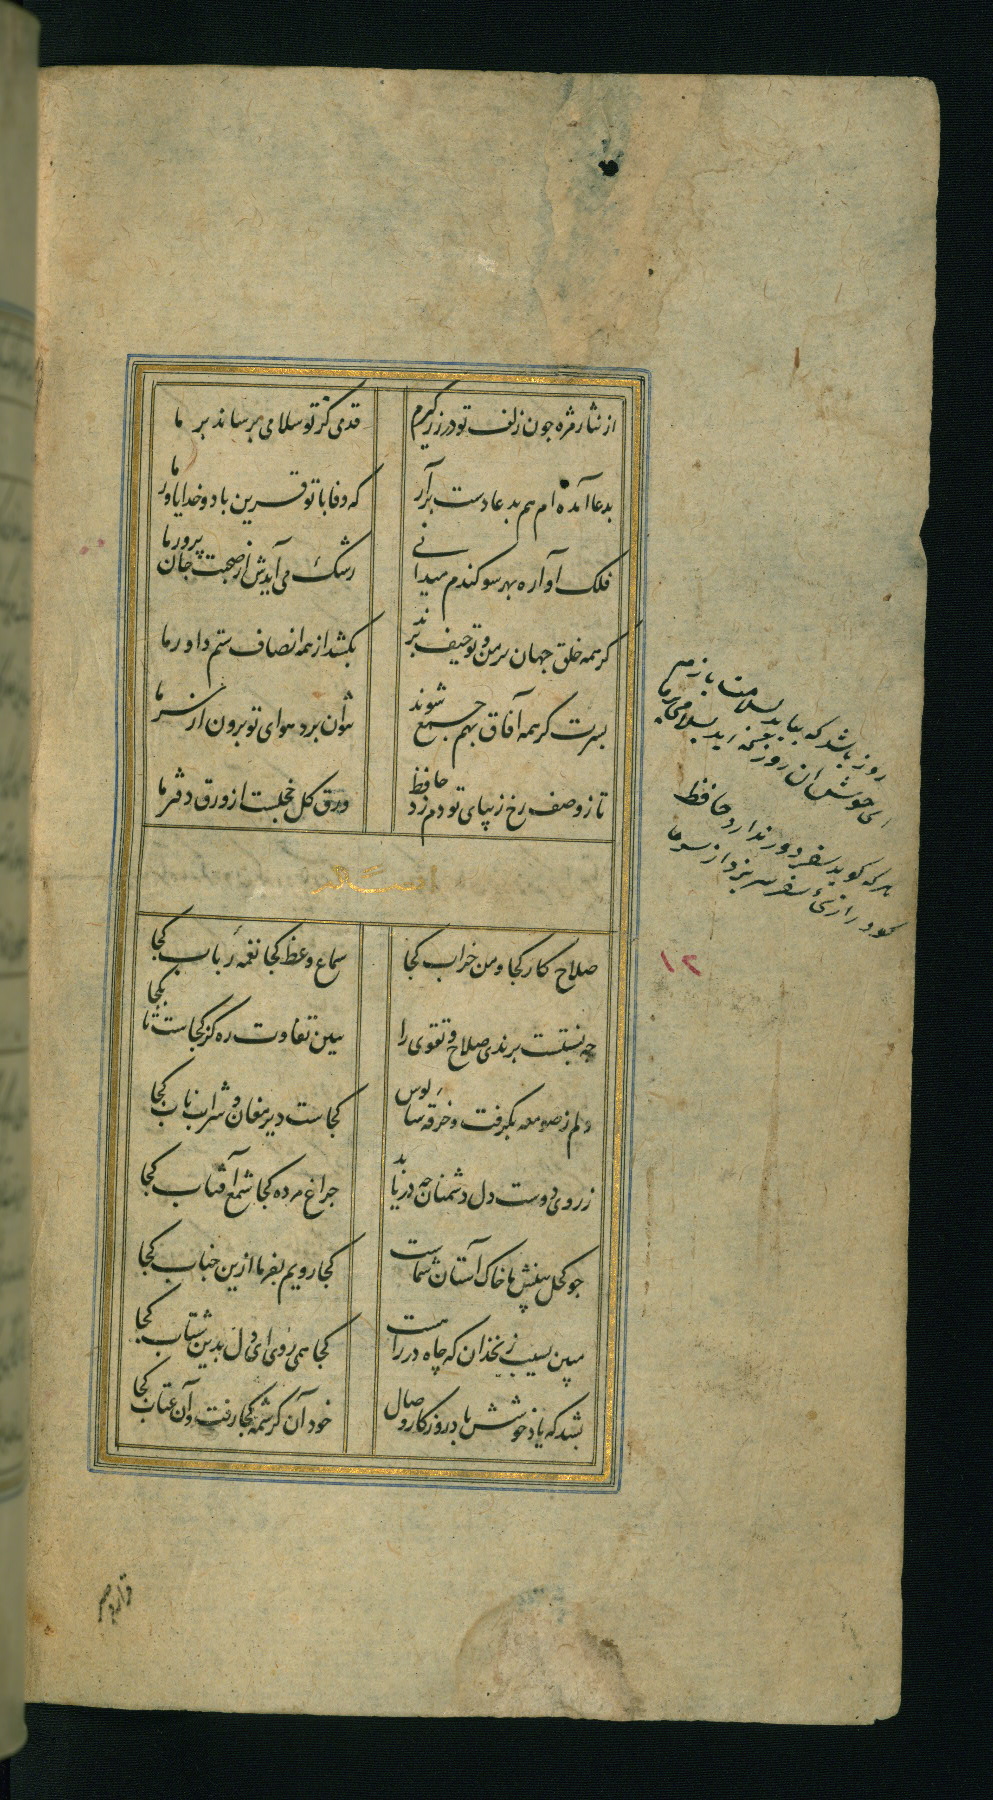 از نثار مژه چون زلف تو در زر گیرم
قدمی کز تو سلامی برساند بر ما
بدعا آمده ام هم بدعا دست برآر
که وفا با تو قرین باد و خدا یاور ما
فلک آواره بهر سو کندم میدانی
رشک می آیدش از صحبت جان پرور ما
گر همه خلق جهان بر من و تو حیف برند
بکشد از همه انصاف ستم داور ما
بسرت گر همه آفاق بهم جمع شوند
نتوان برد هوای تو برون از سر ما
تا ز وصف رخ زیبای تو دم زد حافظ
ورق کل خجلست از ورق دفتر ما
صلاح کار کجا و من خراب کجا
سماع وعظ کجا نغمه رباب کجا
چه نسبتست برندی صلاح و تقوی را
ببین تفاوت ره کز کجاست تا بکجا
دلم ز صومعه بگرفت و خرقه سالوس
کجاست دیر مغان و شراب ناب کجا
ز روی دوست دل دشمنان چه دریابد
چراغ مرده کجا شمع آفتاب کجا
چو کحل بینش ما خاک آستان شماست
کجا رویم بفرما ازین جناب کجا
مبین بسیب زنخدان که چاه در راهست
کجا همی روی ای دل بدین شتاب کجا
بشد که یاد خوشش باد روزکار وصال
خود آن کرشمه کجا رفت و آن عتاب کجا
روز باشد که بیاید بسلامت بازم
ای خوش آن روز که آید بسلامی بر ما
هر که گوید سفر دور ندارد حافظ
۱۲